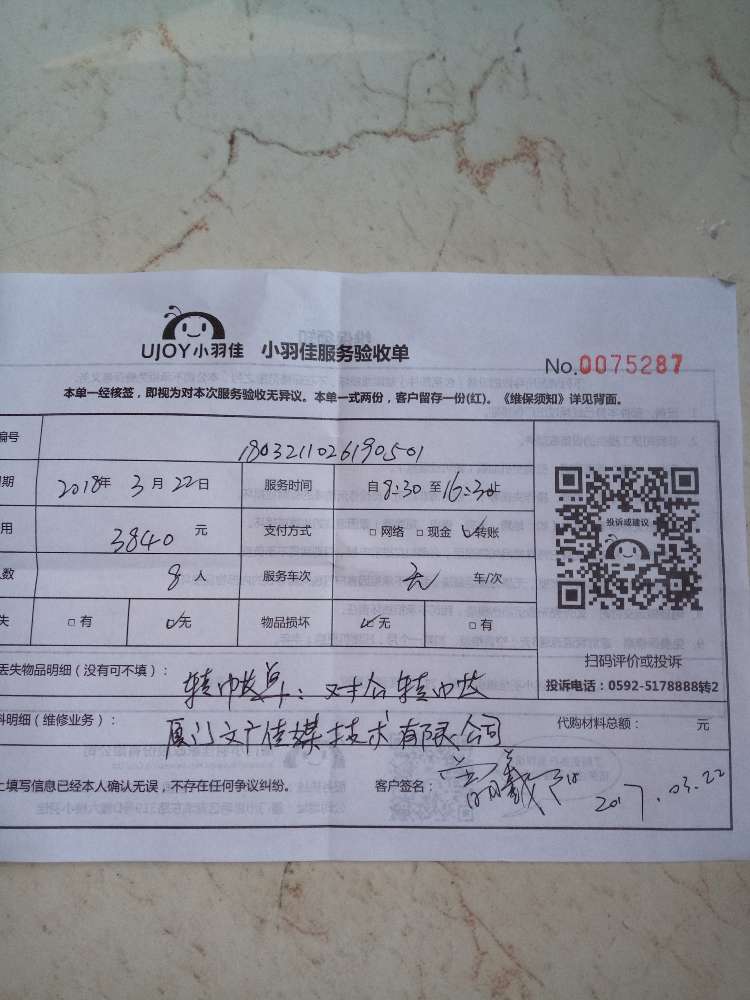 UJOY小羽佳 小羽佳服务验收单
No.0075287
本单一经核签，即视为对本次服务验收无异议。本单一式两份，客户留存一份(红)。《维保须知》详见背面。
编号 1803211026190501
期 2018年 3月 22日 服务时间 自 8:30 至 16:30止
用 3840 元 支付方式 □网络 □现金 ☑转账
人数 8 人 服务车次 无 车/次
失 □有 ☑无 物品损坏 ☑无 □有
投诉或建议
扫码评价或投诉
投诉电话：0592-5178888转2
丢失物品明细（没有可不填）：
料明细（维修业务）： 厦门文广传媒技术有限公司 代购材料总额： 元
上填写信息已经本人确认无误，不存在任何争议纠纷。 客户签名： 2017.03.22